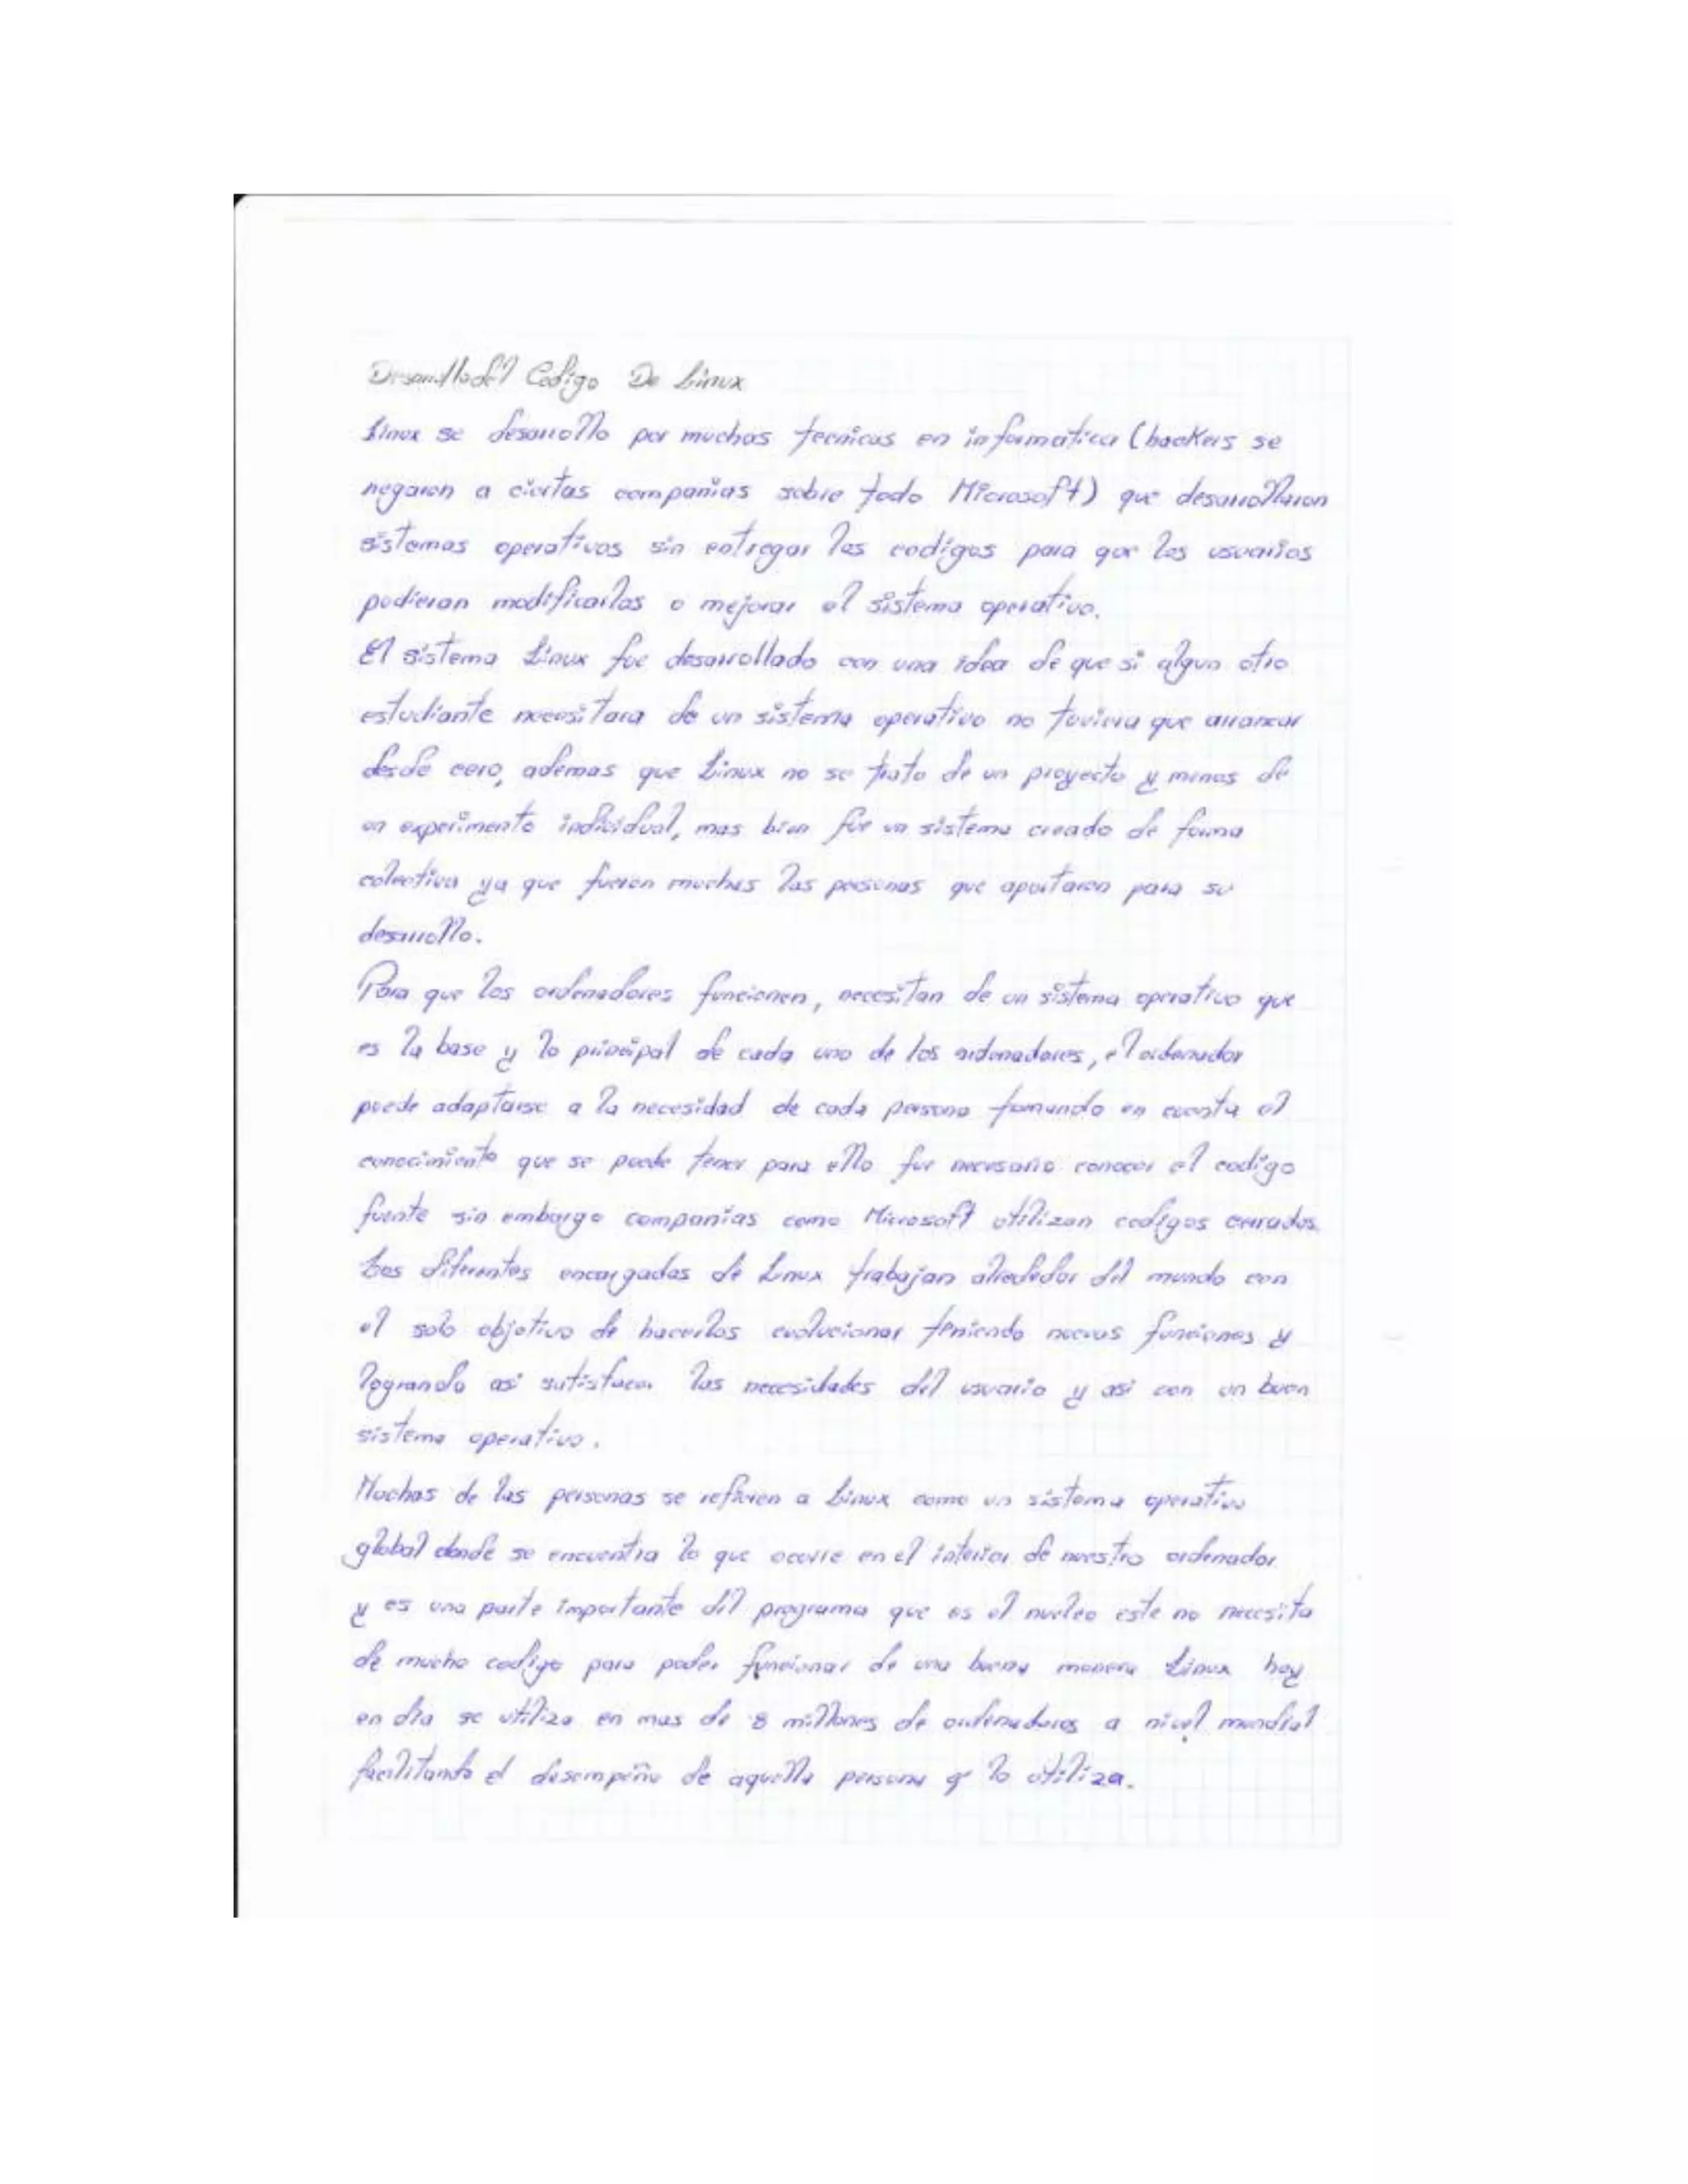 Desarrollo del Codigo De Linux
Linux se desarrollo por muchos tecnicos en informatica (hackers se
negaron a ciertas companias sobre todo Microsoft) que desarrollaron
sistemas operativos sin entregar los codigos para que los usuarios
pudieran modificarlos o mejorar el sistema operativo.
El sistema Linux fue desarrollado con una idea de que si algun otro
estudiante necesitara de un sistema operativo no tuviera que arrancar
desde cero, ademas que Linux no se trato de un proyecto y menos de
un experimento individual, mas bien fue un sistema creado de forma
colectiva ya que fueron muchas las personas que aportaron para su
desarrollo.
Para que los ordenadores funcionen, necesitan de un sistema operativo que
es la base y lo principal de cada uno de los ordenadores, el ordenador
puede adaptarse a la necesidad de cada persona tomando en cuenta el
conocimiento que se puede tener para ello fue necesario conocer el codigo
fuente sin embargo companias como Microsoft utilizan codigos cerrados.
Los diferentes encargados de Linux trabajan alrededor del mundo con
el solo objetivo de hacerlos evolucionar teniendo nuevas funciones y
logrando asi satisfacer las necesidades del usuario y asi con un buen
sistema operativo.
Muchas de las personas se refieren a Linux como un sistema operativo
global donde se encuentra lo que ocurre en el interior de nuestro ordenador
y es una parte importante del programa que es el nucleo este no necesita
de mucho codigo para poder funcionar de una buena manera Linux hoy
en dia se utiliza en mas de 8 millones de ordenadores a nivel mundial
facilitando el desempeño de aquella persona q' lo utiliza.